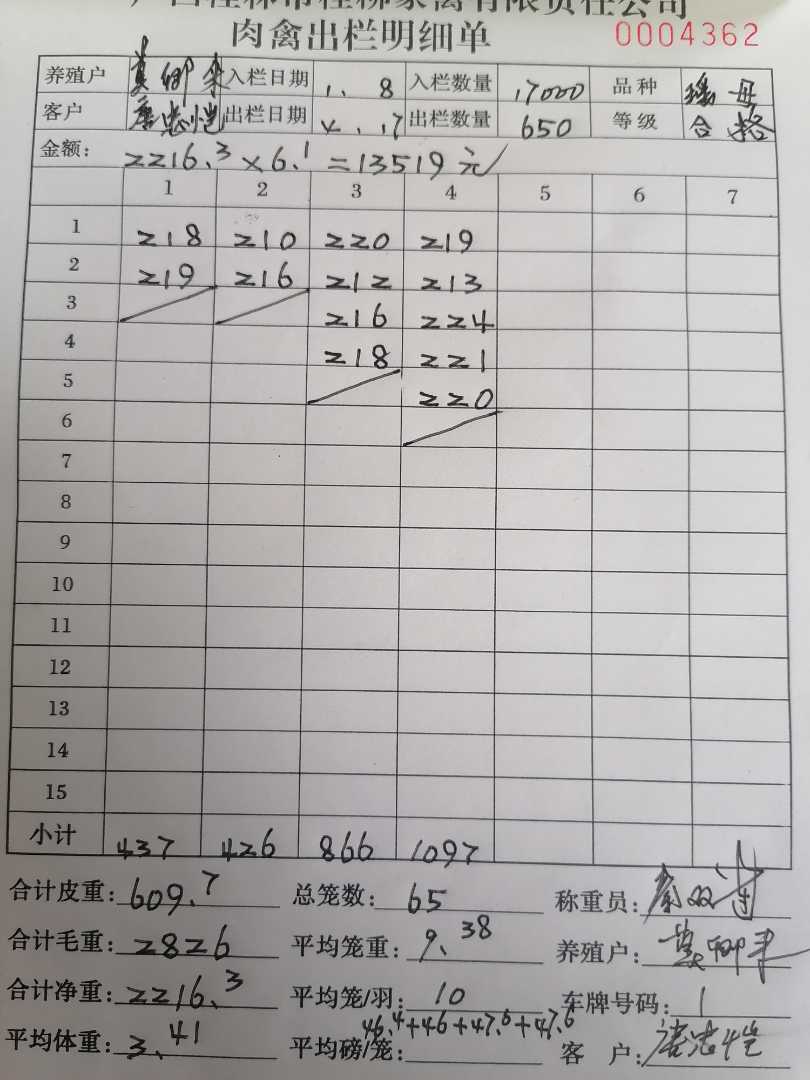 广西桂林市桂柳家禽有限责任公司
肉禽出栏明细单 0004362
养殖户 黄卿来 入栏日期 1.8 入栏数量 17000 品种 瑶母
客户 唐忠恺 出栏日期 4.17 出栏数量 650 等级 合格
金额: 2216.3×6.1=13519元
1 2 3 4 5 6 7
1 218 210 220 219
2 219 216 212 213
3 216 224
4 218 221
5 220
6
7
8
9
10
11
12
13
14
15
小计 437 426 866 1097
合计皮重: 609.7 总笼数: 65 称重员: 秦双
合计毛重: 2826 平均笼重: 9.38 养殖户: 黄卿来
合计净重: 2216.3 平均笼/羽: 10 车牌号码: 1
平均体重: 3.41 平均磅/笼: 46.4+46+47.6+47.6 客 户: 唐忠恺